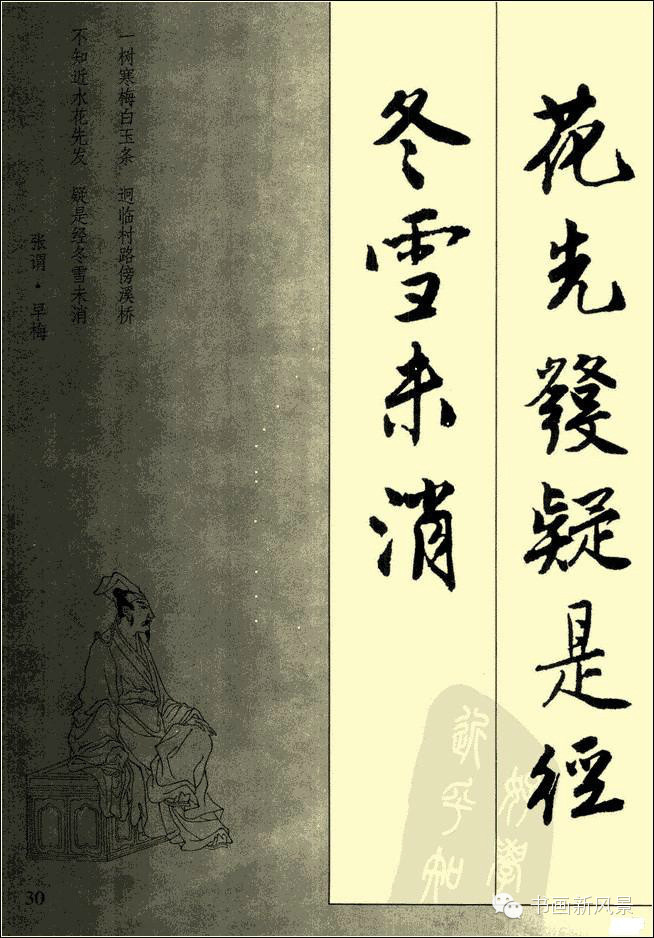 花先發疑是經
冬雪未消
好學
近乎知
一树寒梅白玉条 迥临村路傍溪桥
不知近水花先发 疑是经冬雪未消
张谓·早梅
30
书画新风景